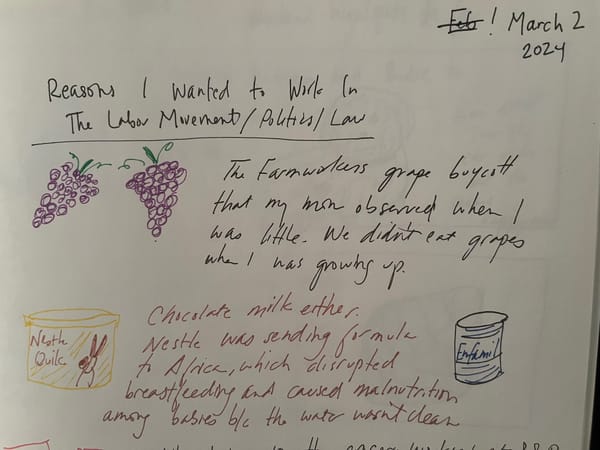 Feb ! March 2
2024
Reasons I Wanted to Work In
The Labor Movement/Politics/Law
The Farmworkers grape boycott
that my mom observed when I
was little. We didn't eat grapes
when I was growing up.
Chocolate milk either.
Nestle was sending formula
to Africa, which disrupted
breastfeeding and caused malnutrition
among babies b/c the water wasn't clean
Nestle
Quik
Enfamil